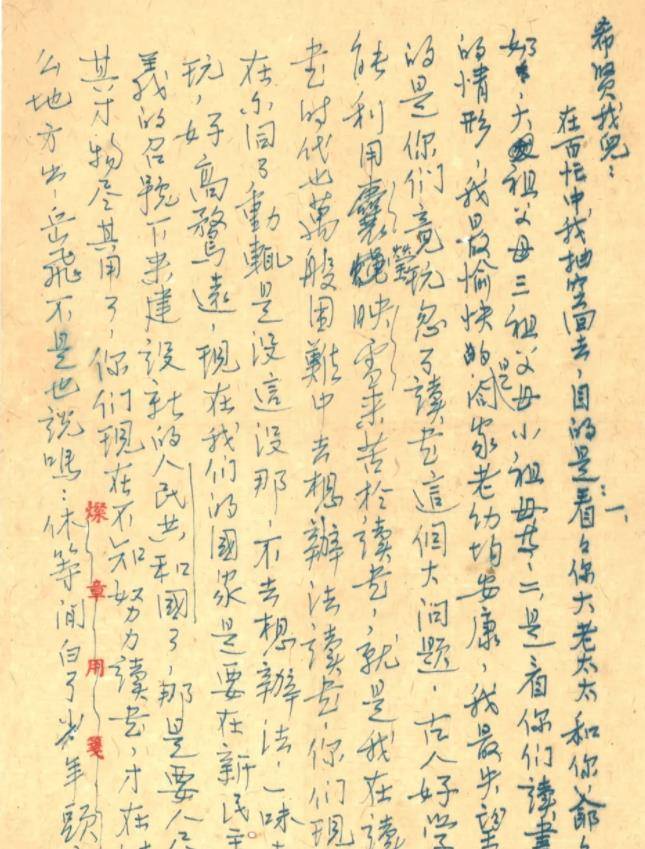 希贤我儿：
在百忙中我抽空回去，目的是：一、看々你大老太太和你爷々
奶々，大祖父母三祖父母小祖母等，二、是看你们读书
的情形，我最愉快的是阖家老幼均安康，我最失望
的是你们竟玩忽了读书这個大问题，古人好学
能利用囊萤映雪来苦於读书，就是我在读
书时代也萬般困難中去想辦法读书，你们现
在尔因了動輒是没這没那，不去想辦法，一味
玩，好高骛遠，现在我们的國家是要在新民主
義的名號下来建设新的人民共和國了，那是要人尽
其才物尽其用了，你们现在不知努力读书，才在
么地方出，岳飛不是也説嗎：休等闲白了少年頭
燦章用箋